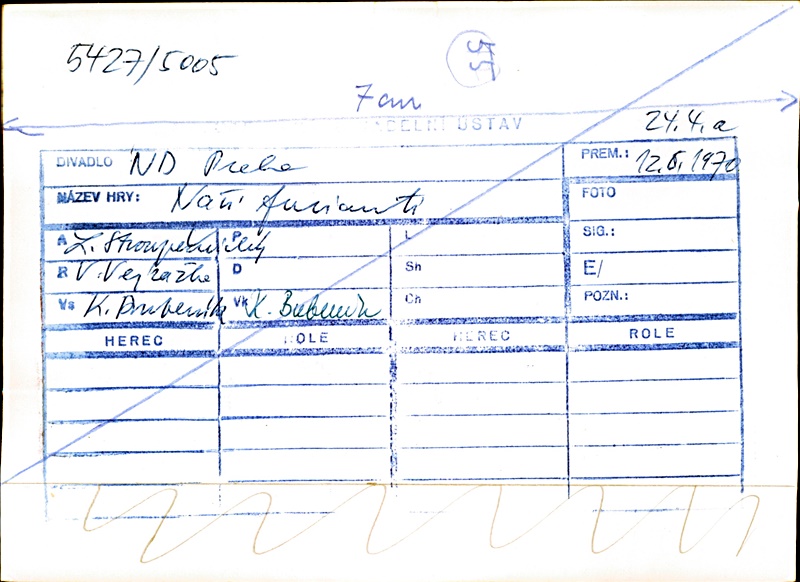 5427/5005
55
7 cm
DELNÍ ÚSTAV
24.4. a
DIVADLO ND Praha
PREM.: 12.6.1970
NÁZEV HRY: Naši furianti
FOTO
A L. Stroupežnický
P
L
SIG.:
R V. Vejražka
D
Sh
E/
Vs K. Bubeník
Vk K. Bubeník
Ch
POZN.:
HEREC ROLE HEREC ROLE